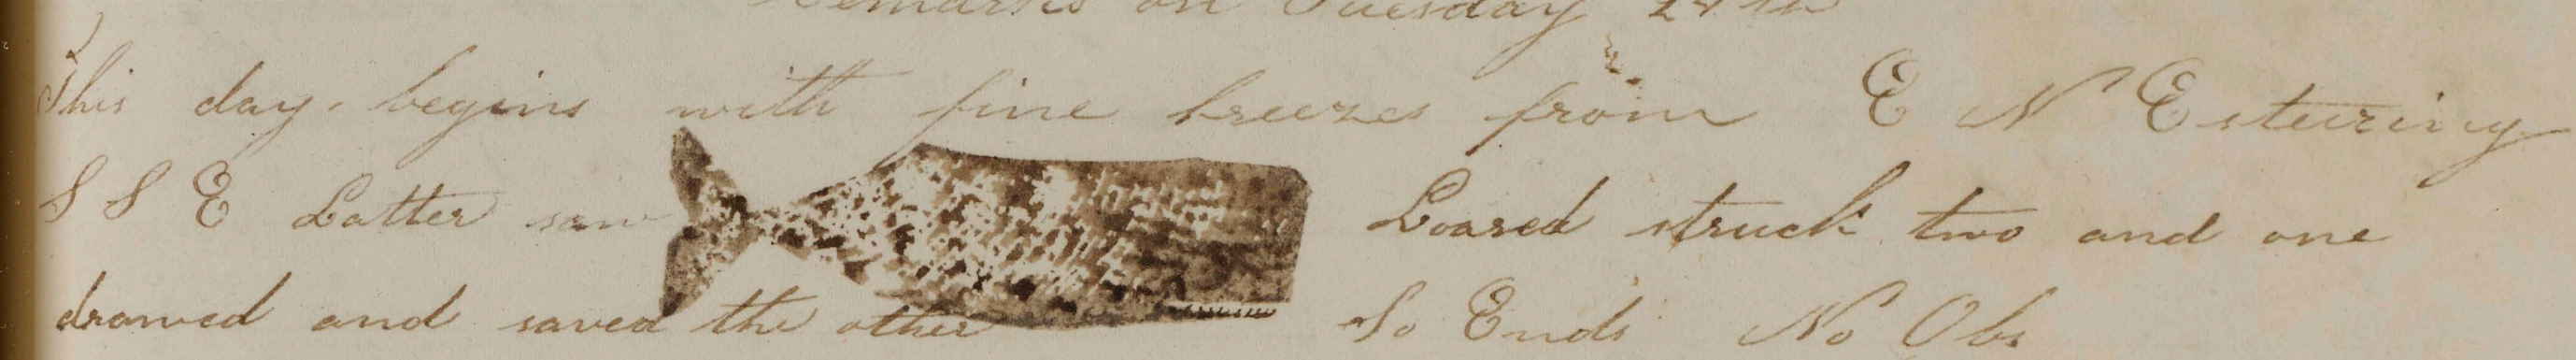 Remarks on Tuesday 24th
This day begins with fine breezes from E N E sturing
S S E Latter saw Loared struck two and one
drawed and saved the other So Ends No Obs